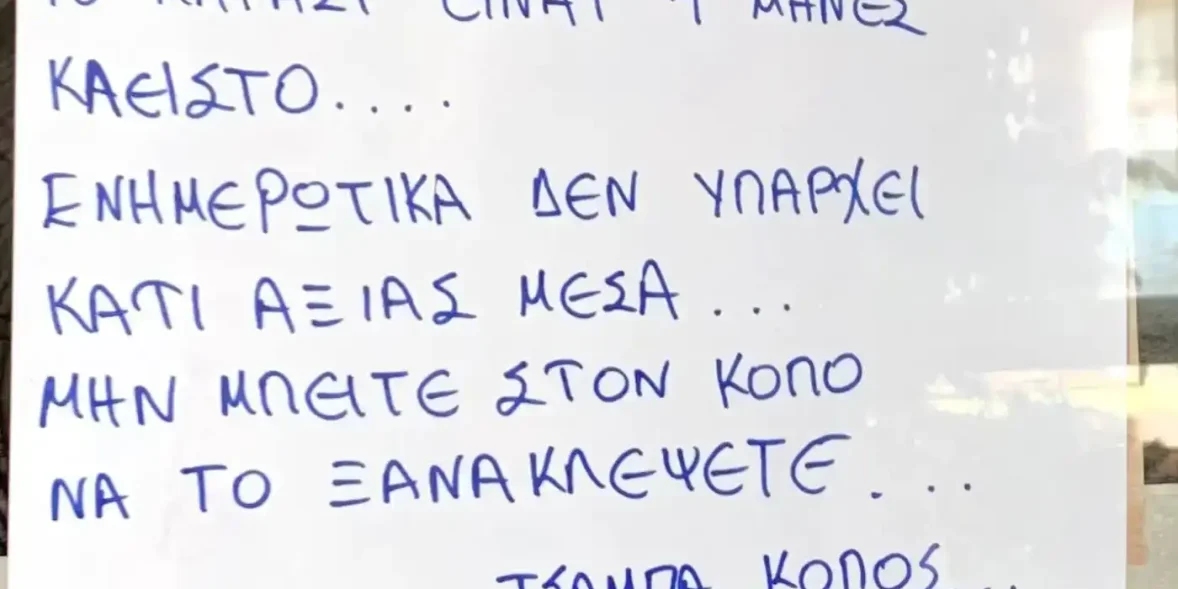 ΤΟ ΜΑΓΑΖΙ ΕΙΝΑΙ ΜΗΝΕΣ
ΚΛΕΙΣΤΟ....
ΕΝΗΜΕΡΩΤΙΚΑ ΔΕΝ ΥΠΑΡΧΕΙ
ΚΑΤΙ ΑΞΙΑΣ ΜΕΣΑ...
ΜΗΝ ΜΠΕΙΤΕ ΣΤΟΝ ΚΟΠΟ
ΝΑ ΤΟ ΞΑΝΑΚΛΕΨΕΤΕ...
ΤΣΑΜΠΑ ΚΟΠΟΣ...